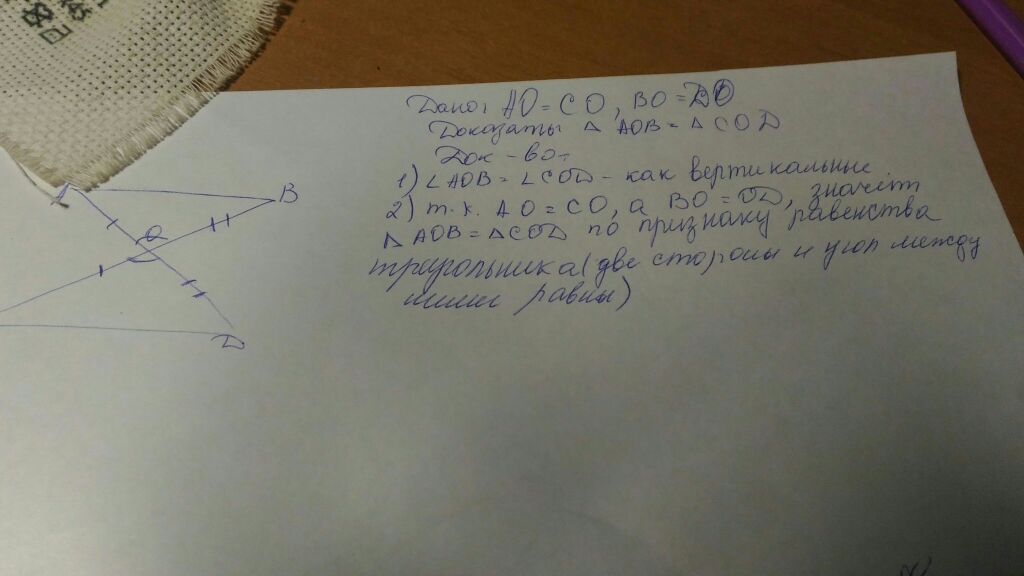 Дано: AO = CO, BO = DO
Доказать: △ AOB = △ COD
Док-во:
1) ∠AOB = ∠COD - как вертикальные
2) т.к. AO = CO, а BO = OD, значит
△ AOB = △COD по признаку равенства
треугольника (две стороны и угол между
ними равны)
A
B
O
D